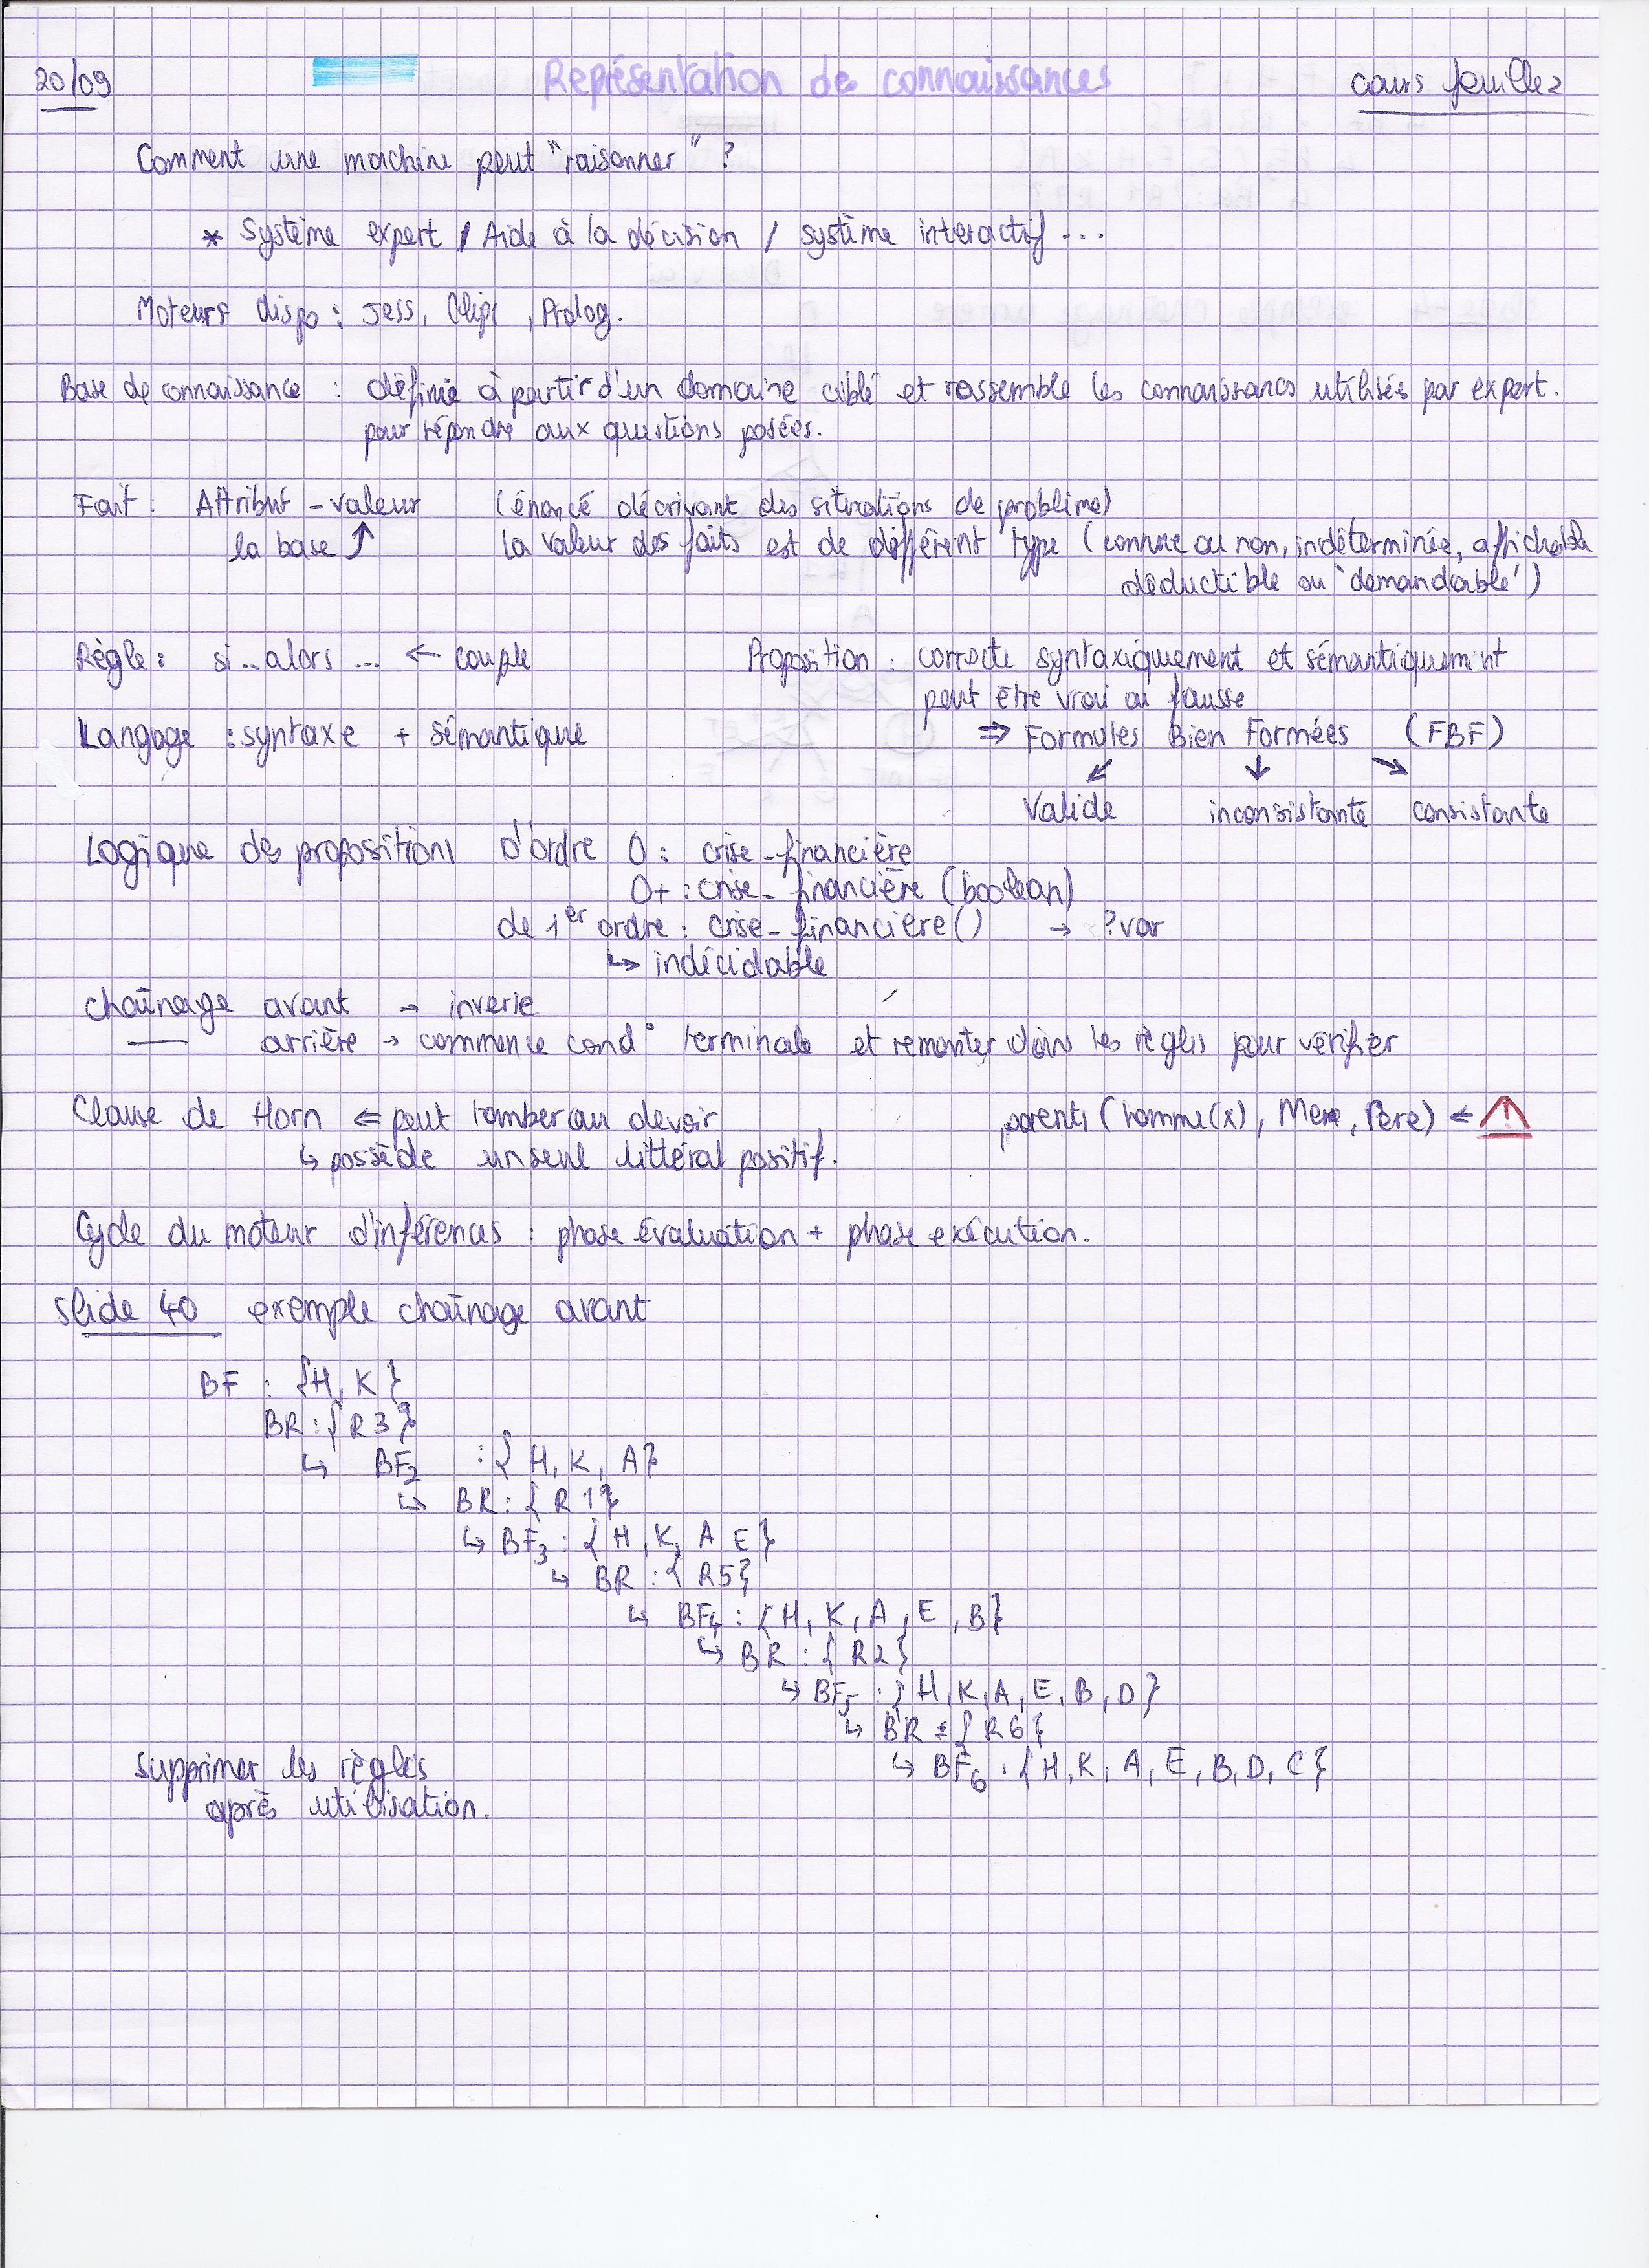 20/09 Représentation de connaissances cours feuille 2
Comment une machine peut "raisonner" ?
* Système expert / Aide à la décision / système interactif ...
Moteurs dispo : Jess, Clips, Prolog.
Base de connaissance : définie à partir d'un domaine ciblé et rassemble les connaissances utilisés par expert.
pour répondre aux questions posées.
Fait : Attribut - valeur (énoncé décrivant des situations de problème)
la base ↑ la valeur des faits est de différent type (connue ou non, indéterminée, affichable
déductible ou 'demandable')
Règle : si .. alors ... ← couple Proposition : correcte syntaxiquement et sémantiquement
peut être vrai ou fausse
Langage : syntaxe + sémantique ⇒ Formules Bien Formées (FBF)
↙ ↓ ↘
Valide inconsistante consistante
Logique des propositions d'ordre 0 : crise-financière
0+ : crise-financière (boolean)
de 1er ordre : crise-financière() → ?var
↳ indécidable
chaînage avant → inverse
arrière → commence cond° terminale et remonter dans les règles pour vérifier
Clause de Horn ⇐ peut tomber au devoir parents (homme(x), Mere, Père) ← ⚠
↳ possède un seul littéral positif.
Cycle du moteur d'inférences : phase évaluation + phase exécution.
slide 40 exemple chaînage avant
BF : {H, K}
BR : {R3}
↳ BF2 : {H, K, A}
↳ BR : {R1}
↳ BF3 : {H, K, A E}
↳ BR : {R5}
↳ BF4 : {H, K, A, E, B}
↳ BR : {R2}
↳ BF5 : {H, K, A, E, B, D}
↳ BR : {R6}
supprimer les règles ↳ BF6 : {H, K, A, E, B, D, C}
après utilisation.